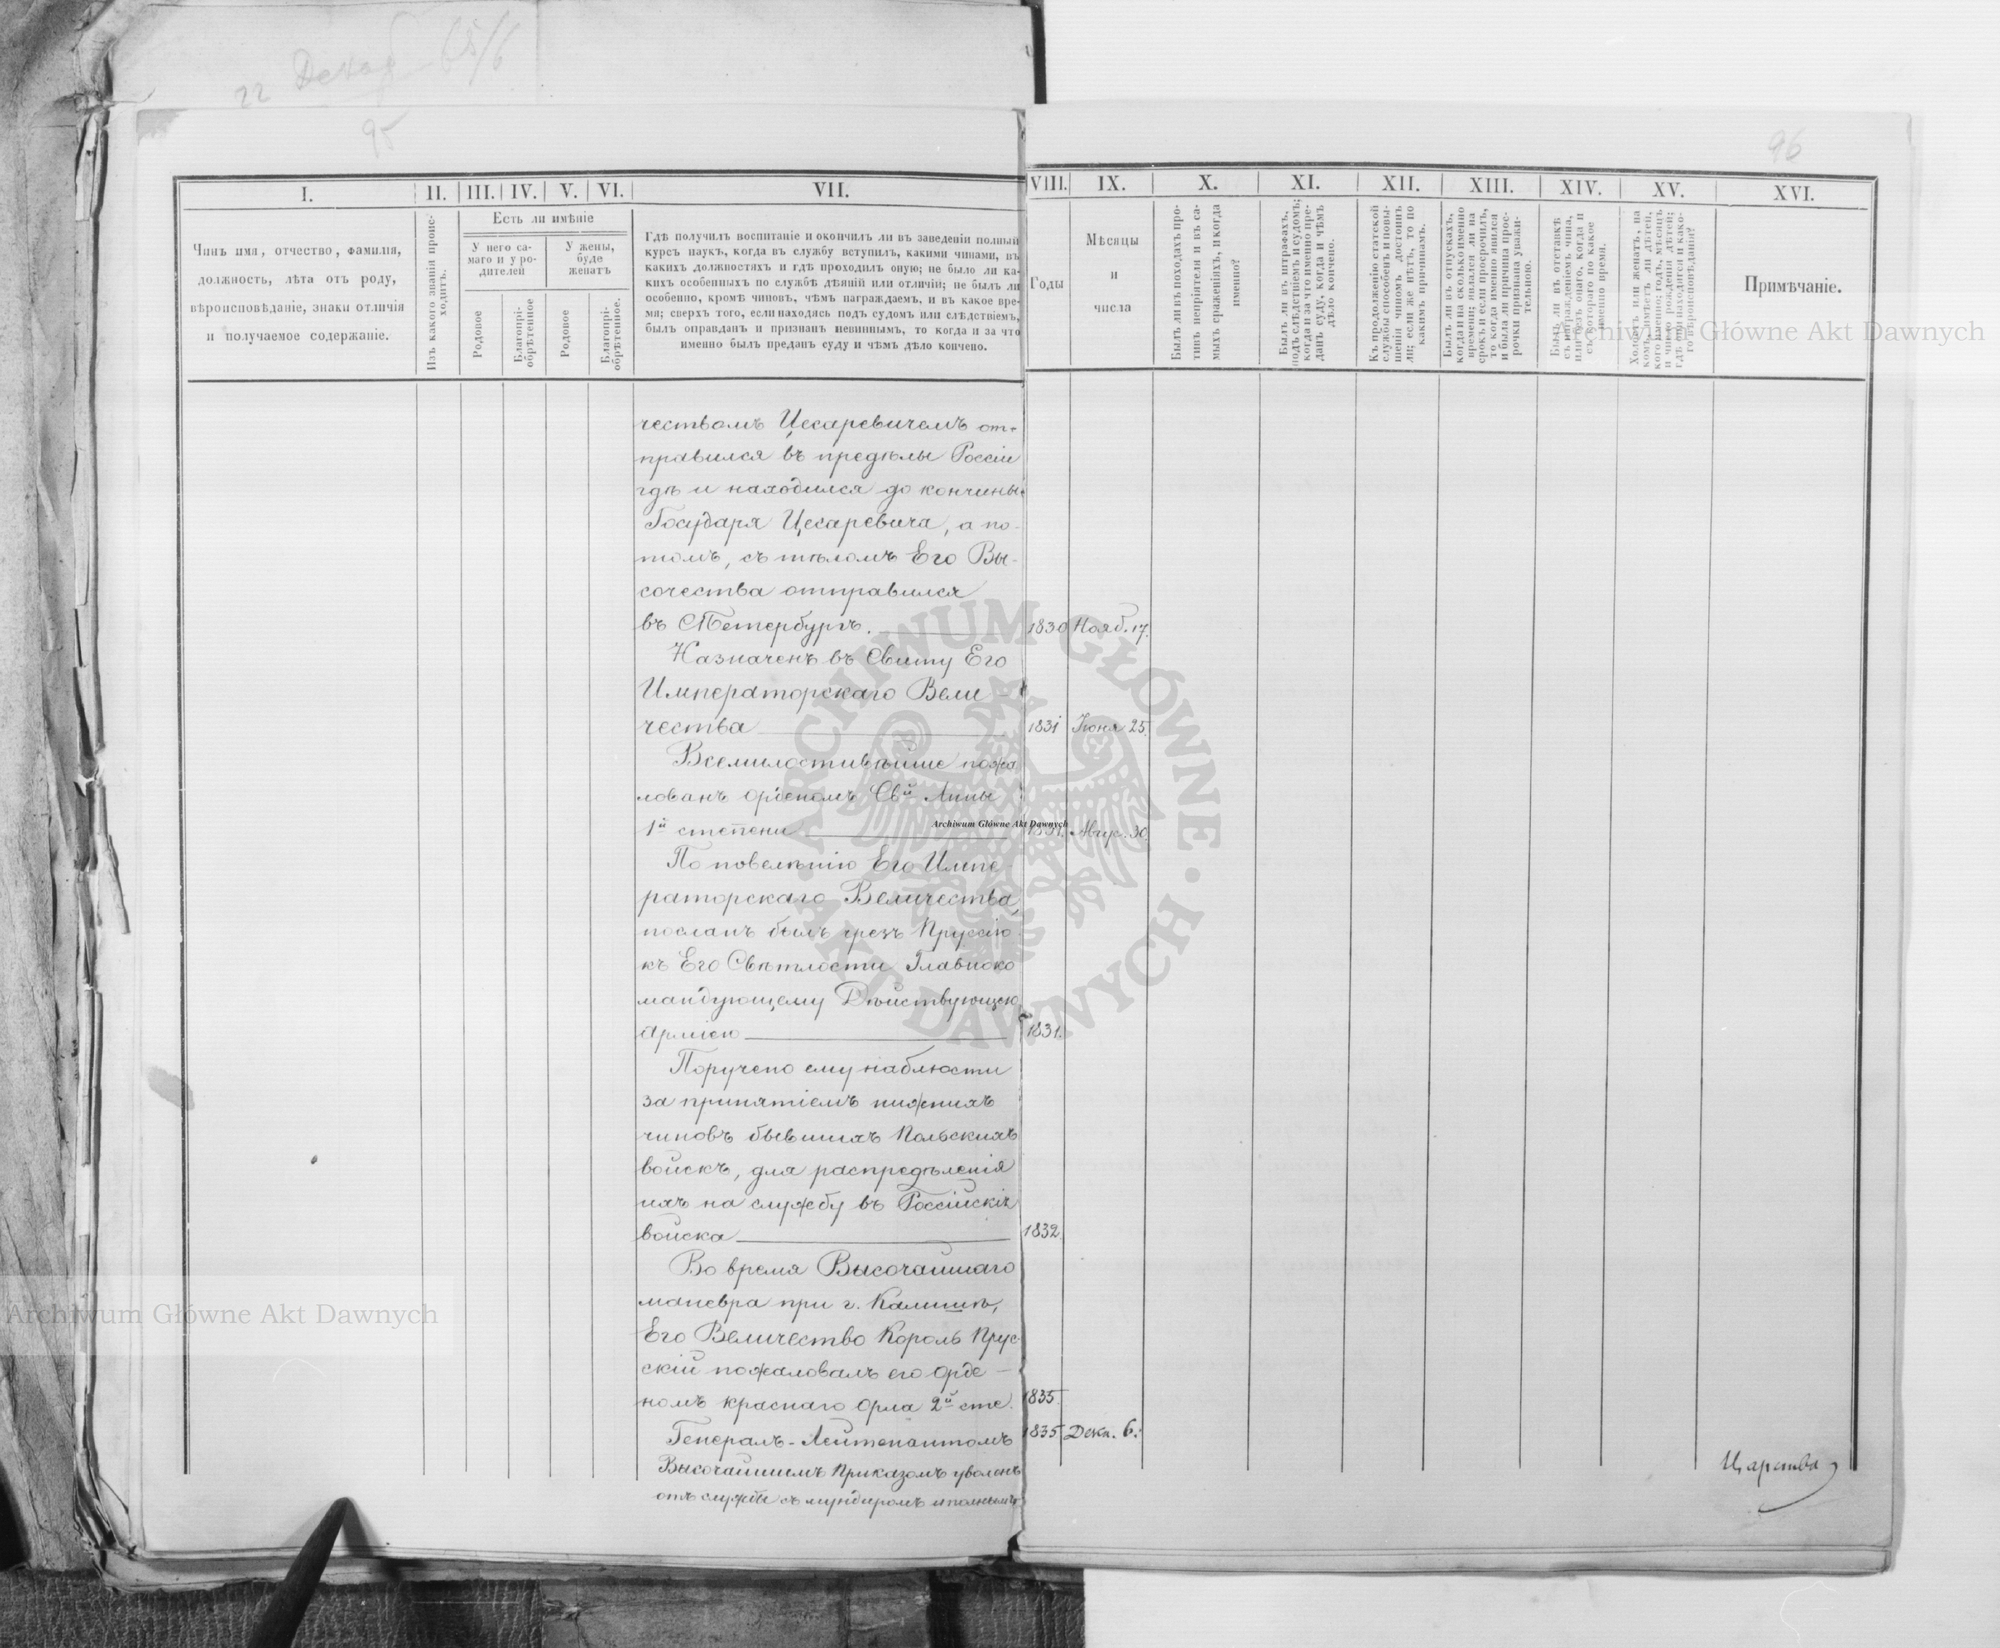 22 Декаб 65/6
95
96
I.
II.
III.
IV.
V.
VI.
VII.
VIII.
IX.
X.
XI.
XII.
XIII.
XIV.
XV.
XVI.
Чинъ имя, отчество, фамилія,
должность, лѣта отъ роду,
вѣроисповѣданіе, знаки отличія
и получаемое содержаніе.
Изъ какого званія проис-
ходитъ.
Есть ли имѣніе
У него са-
маго и у ро-
дителей
У жены,
буде
женатъ
Родовое
Благопрі-
обрѣтенное
Родовое
Благопрі-
обрѣтенное.
Гдѣ получилъ воспитаніе и окончилъ ли въ заведеніи полный
курсъ наукъ, когда въ службу вступилъ, какими чинами, въ
какихъ должностяхъ и гдѣ проходилъ оную; не было ли ка-
кихъ особенныхъ по службѣ дѣяній или отличій; не былъ ли
особенно, кромѣ чиновъ, чѣмъ награждаемъ, и въ какое вре-
мя; сверхъ того, если находясь подъ судомъ или слѣдствіемъ,
былъ оправданъ и признанъ невиннымъ, то когда и за что
именно былъ преданъ суду и чѣмъ дѣло кончено.
Годы
Мѣсяцы
и
числа
Былъ ли въ походахъ про-
тивъ непріятеля и въ са-
мыхъ сраженіяхъ, и когда
именно?
Былъ ли въ штрафахъ,
подъ слѣдствіемъ и судомъ;
когда и за что именно пре-
данъ суду, когда и чѣмъ
дѣло кончено.
Къ продолженію статской
службы способенъ и повы-
шенія чиномъ достоинъ
ли; если же нѣтъ, то по
какимъ причинамъ.
Былъ ли въ отпускахъ,
когда и на сколько именно
времени; явился ли на
срокъ и если просрочилъ,
то когда именно явился
и была ли причина прос-
рочки признана уважи-
тельною.
Былъ ли въ отставкѣ
съ награжденіемъ чина,
или безъ онаго, когда и
съ котораго по какое
именно время.
Холостъ или женатъ, на
комъ, имѣетъ ли дѣтей,
кого именно; годъ, мѣсяцъ
и число рожденія дѣтей;
гдѣ они находятся и како-
го вѣроисповѣданія?
Примѣчаніе.
чествомъ Цесаревичемъ от-
правился въ предѣлы Россіи
гдѣ и находился до кончины
Государя Цесаревича, а по-
томъ, съ тѣломъ Его Вы-
сочества отправился
въ СПетербургъ. 1830 Нояб. 17.
Назначенъ въ Свиту Его
Императорскаго Вели-
чества 1831 Іюня 25.
Всемилостивѣйше пожа
лованъ орденомъ Св.й Анны
1й степени 1831. Авгус. 30
По повелѣнію Его Импе-
раторскаго Величества,
посланъ былъ чрезъ Пруссію
къ Его Свѣтлости Главноко
мандующему Дѣйствующею
Арміею 1831.
Поручено ему наблюсти
за принятіемъ нижнихъ
чиновъ бывшихъ Польскихъ
войскъ, для распредѣленія
ихъ на службу въ Россійскія
войска 1832
Во время Высочайшаго
маневра при г. Калишѣ,
Его Величество Король Прус-
скій пожаловалъ его орде-
номъ краснаго Орла 2й сте. 1835.
Генералъ-Лейтенантомъ 1835 Дека. 6.
Высочайшимъ Приказомъ уволенъ
отъ службы съ мундиромъ и полнымъ
Царства
Archiwum Główne Akt Dawnych
Archiwum Główne Akt Dawnych
Archiwum Główne Akt Dawnych
ARCHIWUM GŁÓWNE · AKT DAWNYCH ·